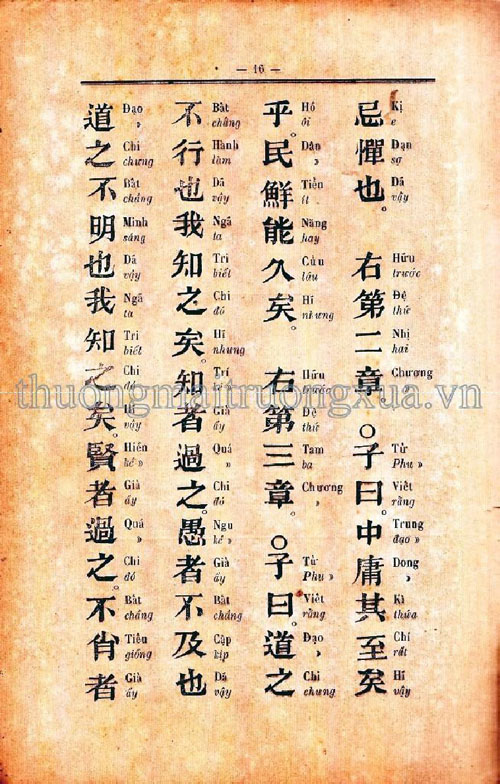 — 16 —
忌憚也。右第二章。○子曰。中庸其至矣
Kị Đạn Dã Hữu Đệ Nhị Chương Tử Viết Trung Dong Kì Chí Hĩ
e sợ vậy trước thứ hai Phu » rằng đạo » » thửa rất vậy
乎。民鮮能久矣。右第三章。○子曰。道之
Hồ Dân Tiển Năng Cửu Hĩ Hữu Đệ Tam Chương Tử Viết Đạo Chi
ôi » ít hay lâu nhưng trước thứ ba » Phu » rằng » chưng
不行也我知之矣。知者過之。愚者不及也
Bất Hành Dã Ngã Tri Chi Hĩ Trí Giả Quá Chi Ngu Giả Bất Cập Dã
chẳng làm vậy ta biết đó nhưng kẻ ấy » đó kẻ » ấy chẳng kịp vậy
道之不明也我知之矣。賢者過之。不肖者
Đạo Chi Bất Minh Dã Ngã Tri Chi Hĩ Hiền Giả Quá Chi Bất Tiếu Giả
» chưng chẳng sáng vậy ta biết đó vậy kẻ » ấy » đó chẳng giống ấy
thuongmaitruongxua.vn